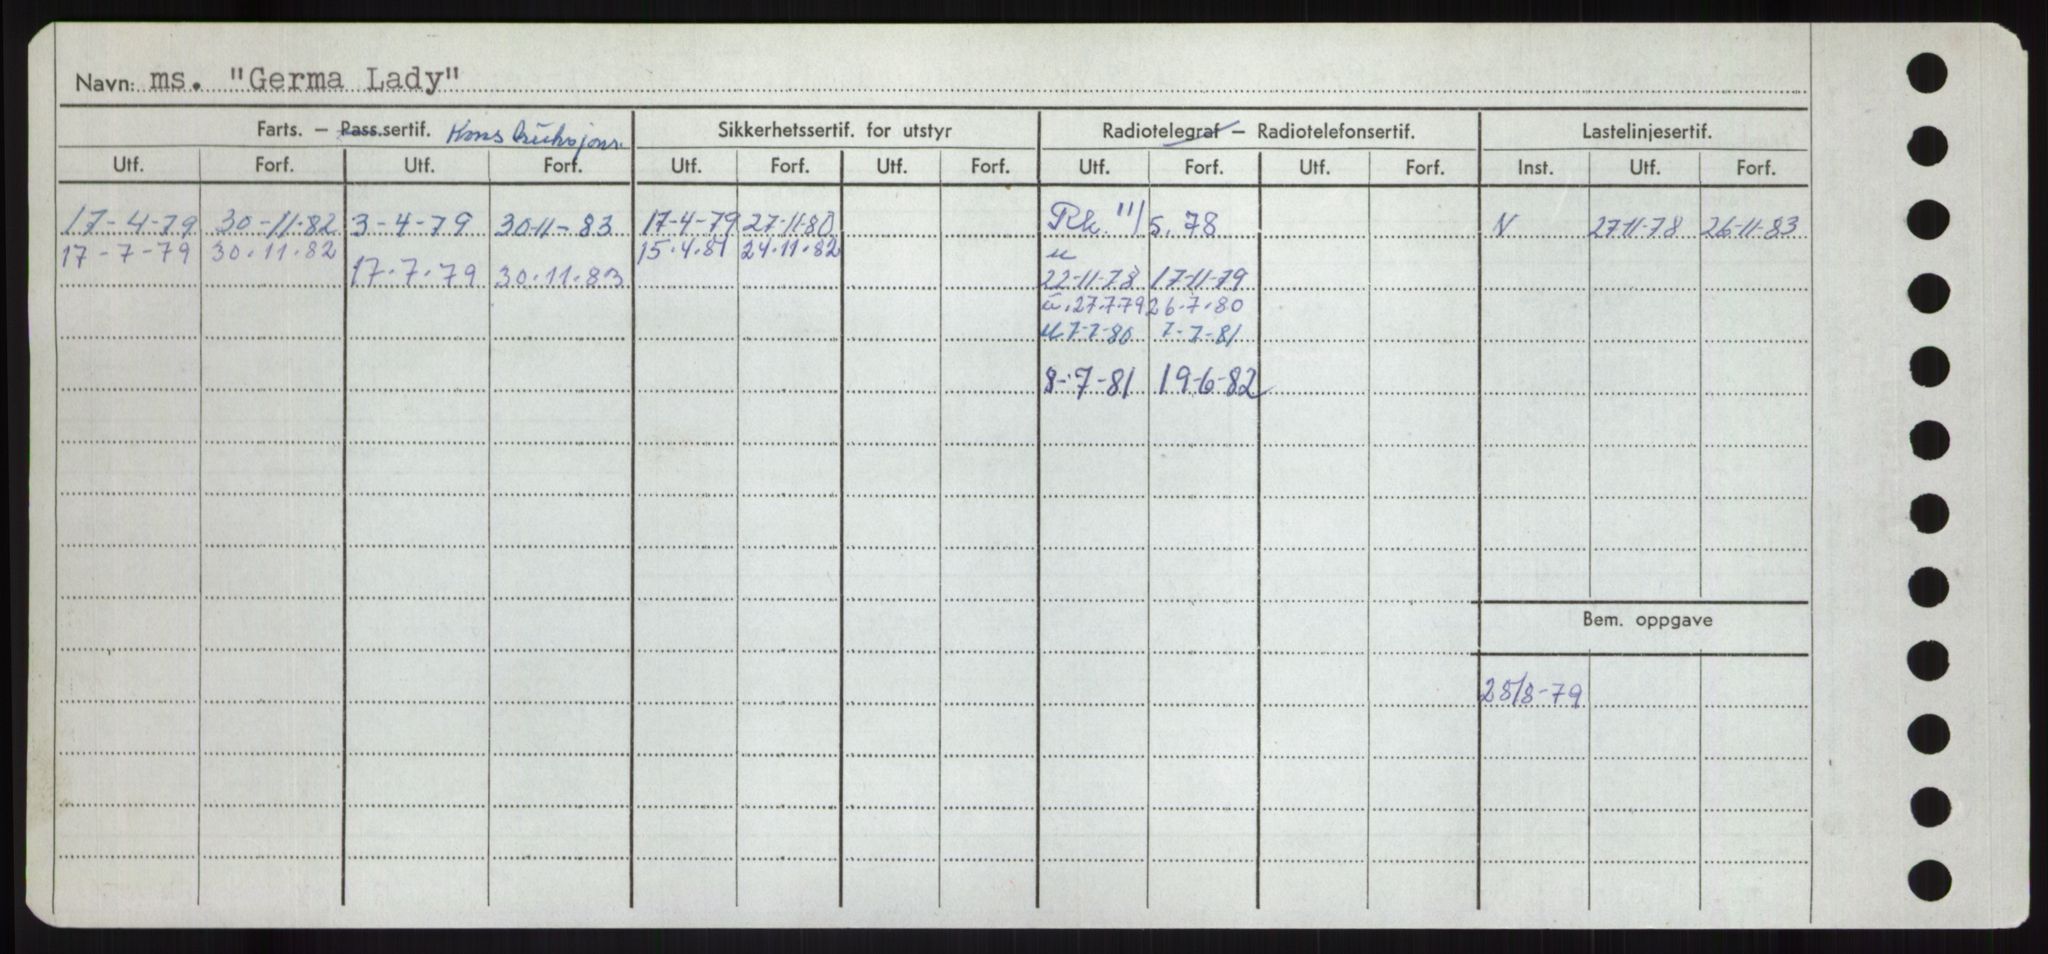 Navn: ms. "Germa Lady"
Farts. — Pass.sertif. Konstruksjons. Sikkerhetssertif. for utstyr Radiotelegraf — Radiotelefonsertif. Lastelinjesertif.
Utf. Forf. Utf. Forf. Utf. Forf. Utf. Forf. Utf. Forf. Utf. Forf. Inst. Utf. Forf.
17-4-79 30-11-82 3-4-79 30-11-83 17-4-79 27-11-80 Rk. 11/5.78 N 27-11-78 26-11-83
17-7-79 30.11.82 15.4.81 24.11.82 u
17.7.79 30.11.83 22-11-78 17-11-79
u.27.7.79 26.7.80
u 7-7-80 7-7-81
8-7-81 19-6-82
Bem. oppgave
28/8-79